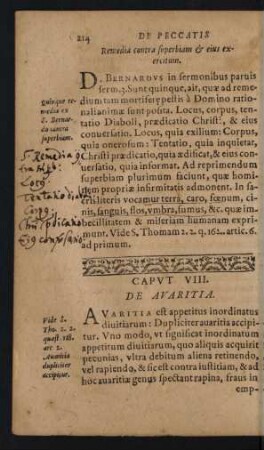 214 DE PECCATIS
Remedia contra superbiam & eius ex-
ercitium.
D. BERNARDVS in sermonibus paruis
serm. 3. Sunt quinque, ait, quæ ad reme-
dium tam mortiferę pestis à Domino ratio-
nali animæ sunt posita. Locus, corpus, ten-
tatio Diaboli, prædicatio Christi, & eius
conuersatio. Locus, quia exilium: Corpus,
quia onerosum: Tentatio, quia inquietat,
Christi prædicatio, quia ædificat, & eius con-
uersatio, quia informat. Ad reprimendum
superbiam plurimum faciunt, quæ homi-
nem propriæ infirmitatis admonent. In sa-
cris literis vocamur terra, caro, fœnum, ci-
nis, sanguis, flos, vmbra, fumus, &c. quæ im-
becillitatem & miseriam humanam expri-
munt. Vide S. Thomam 2. 2. q. 162. artic. 6.
ad primum.
quinque re-
media ex
S. Bernar-
do contra
superbiam.
5. Remedia
Locus
Tentatio
Corpus
CAPVT VIII.
DE AVARITIA.
AVARITIA est appetitus inordinatus
diuitiarum: Dupliciter auaritia accipi-
tur. Vno modo, vt significat inordinatum
appetitum diuitiarum, quo aliquis acquirit
pecunias, vltra debitum aliena retinendo,
vel rapiendo, & sic est contra iustitiam, & ad
hoc auaritiæ genus spectant rapina, fraus in
emp-
Vide S.
Tho. 2. 2.
quæst. 118.
art. 2.
Auaritia
dupliciter
accipitur.